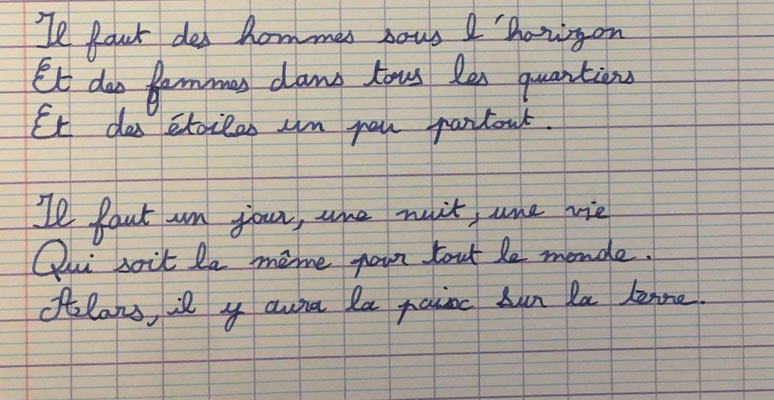 Il faut des hommes sous l'horizon
Et des femmes dans tous les quartiers
Et des étoiles un peu partout.
Il faut un jour, une nuit, une vie
Qui soit la même pour tout le monde.
Alors, il y aura la paix sur la terre.